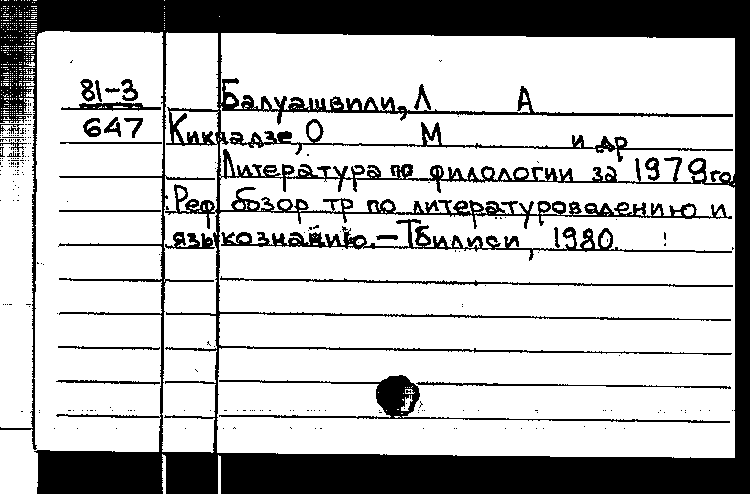 81-3 Балуашвили, Л А
647 Кикнадзе, О М и др
Литература по филологии за 1979 го
Реф бзор тр по литературоведению и
языкознанию.-Тбилиси, 1980